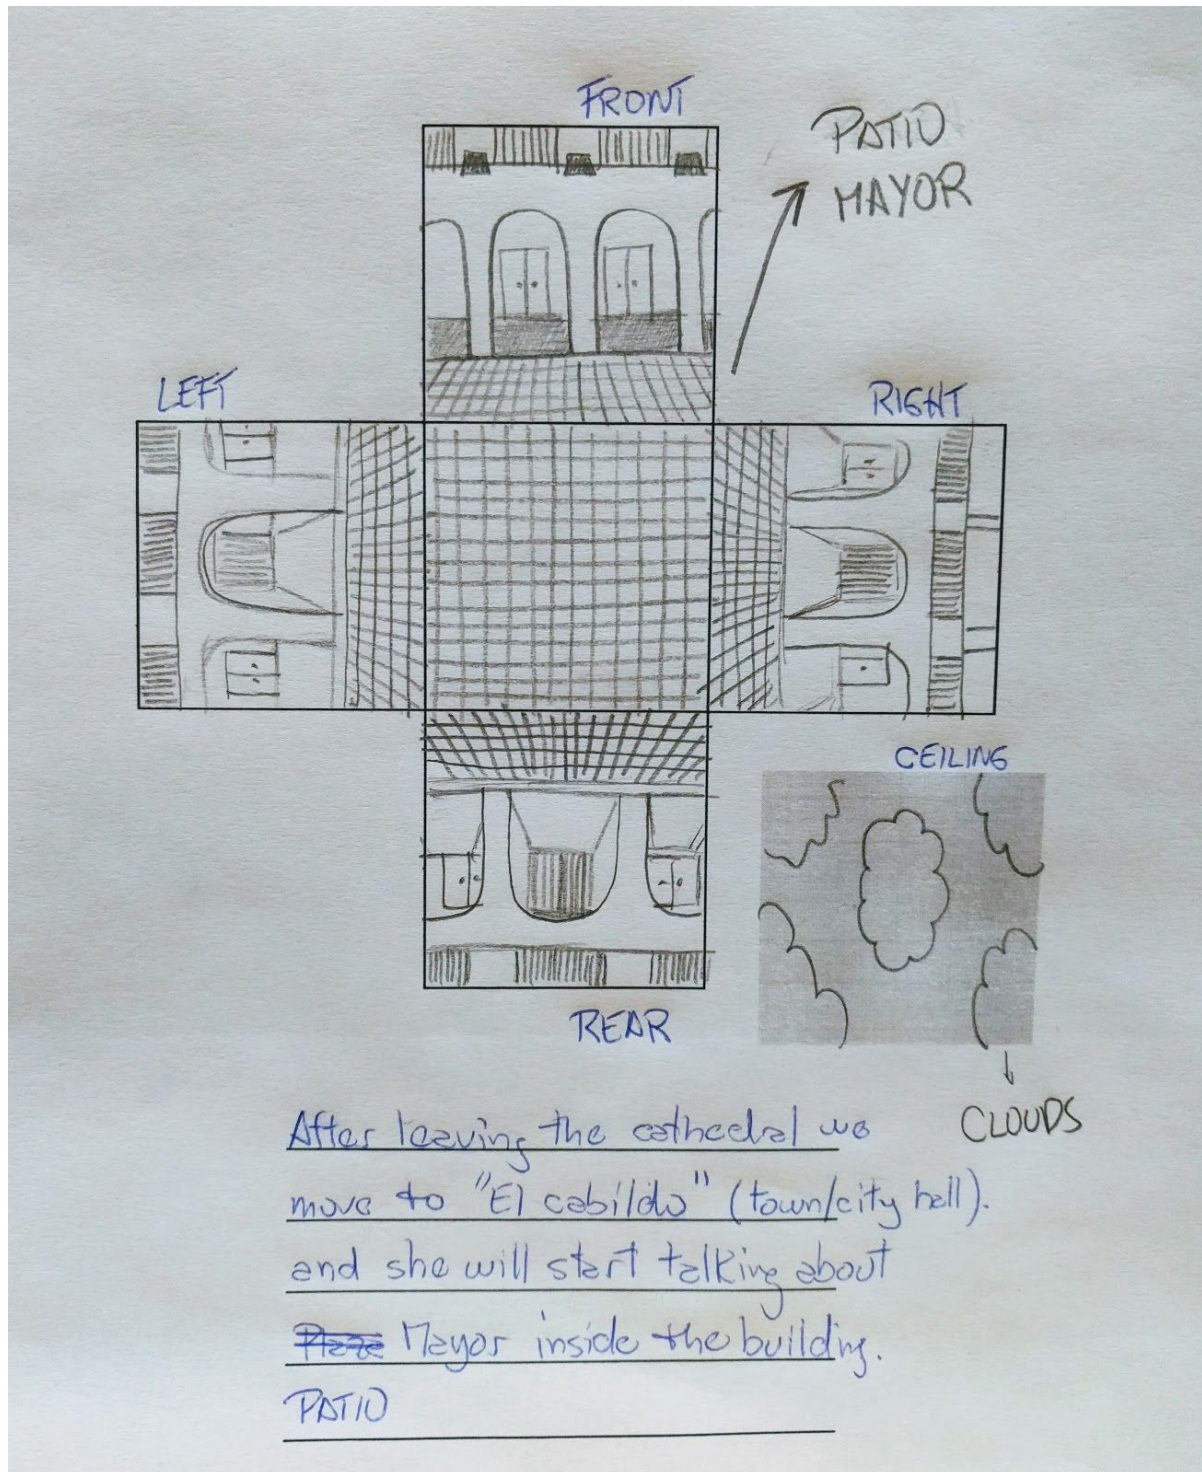 FRONT
PATIO
MAYOR
LEFT
RIGHT
CEILING
REAR
CLOUDS
After leaving the cathedral we
move to "El cabildo" (town/city hall).
and she will start talking about
Plaza Mayor inside the building.
PATIO